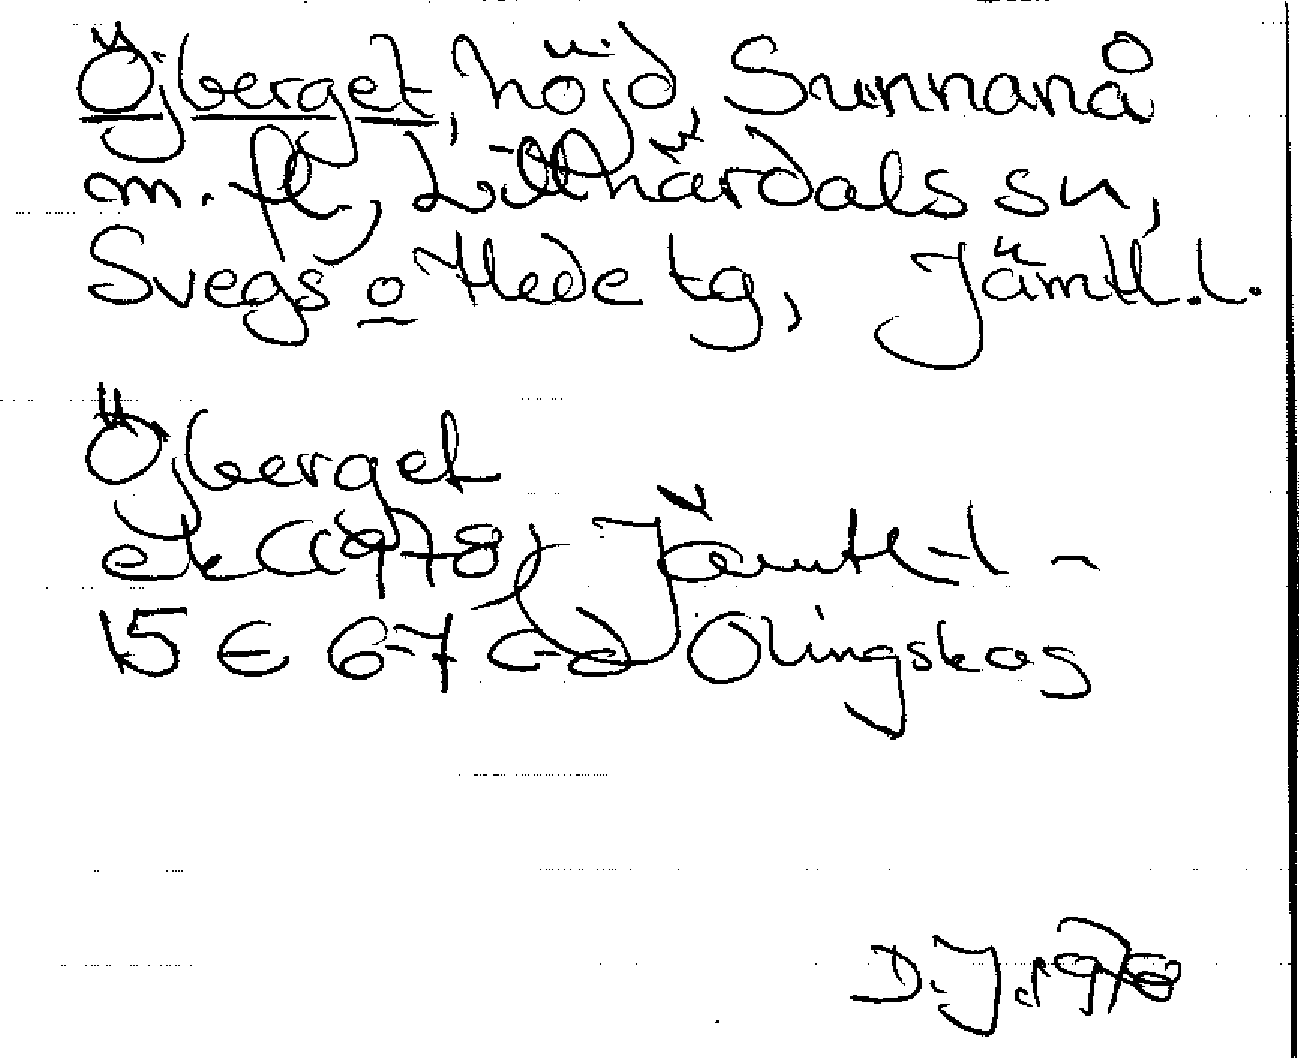 Öjberget, höjd, Sunnanå
m. fl., Lillhärdals sn,
Svegs o Hede tg, Jämtl. l.
Öjberget
ek (1978) Jämtl-l -
15 E 6-7 c-d Olingskog
D. J. 1978